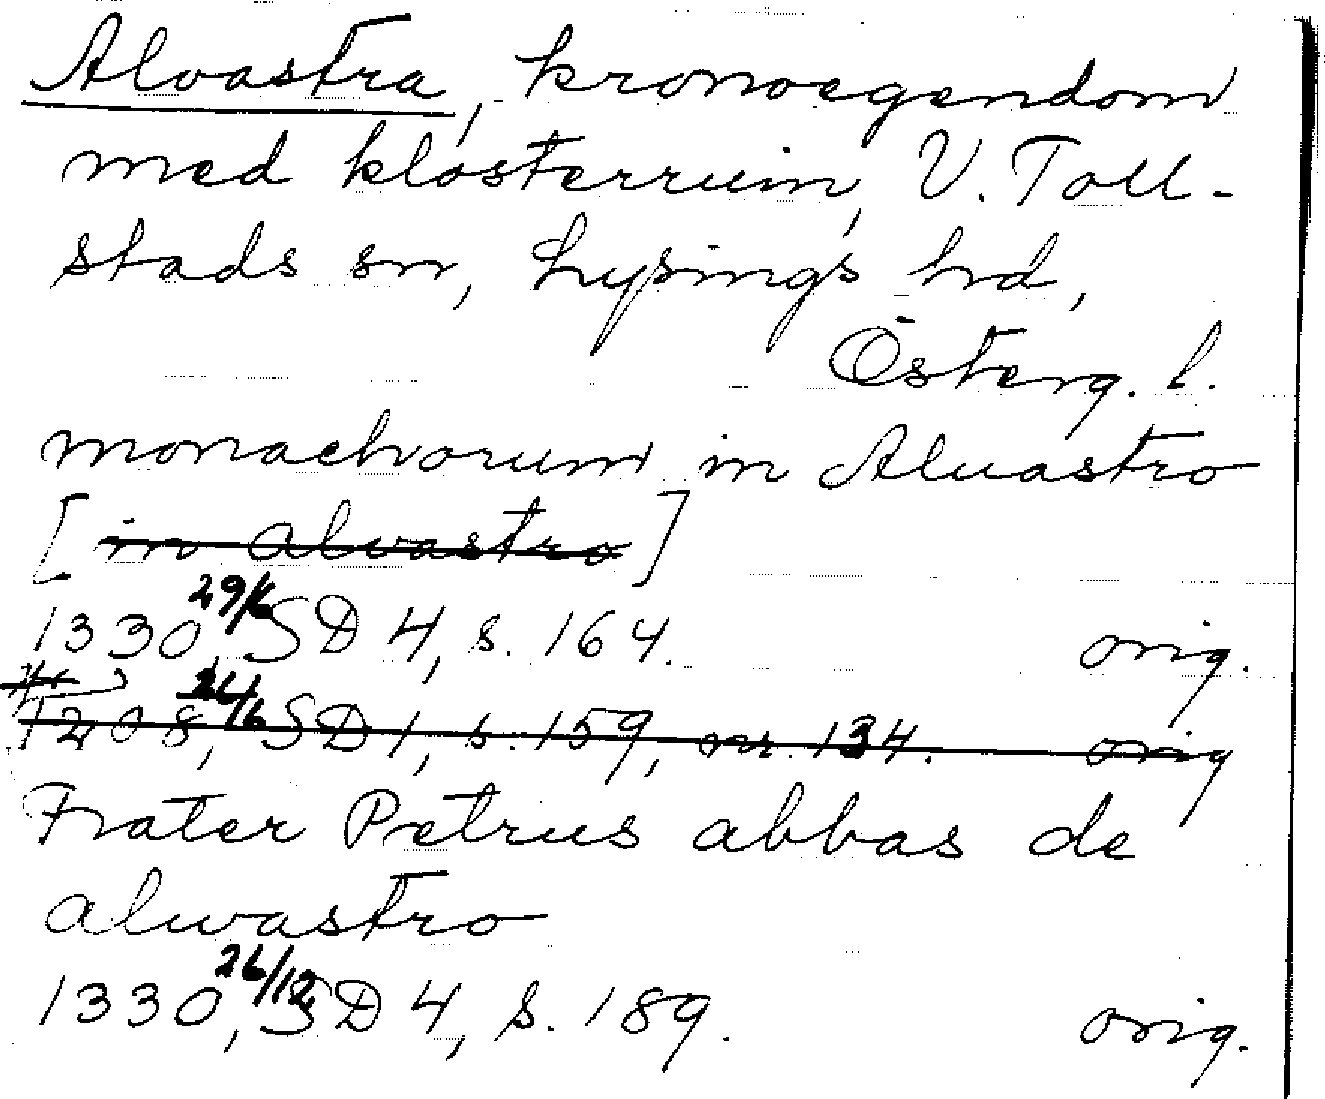 Alvastra, kronoegendom
med klosterruin, V. Toll-
stads sn, Lysings hd,
Österg. l.
monachorum in Aluastro
[in alvastro]
1330 29/6, SD 4, s. 164. orig.
1208, 24/6 SD 1, s. 159, nr. 134. orig
Frater Petrus abbas de
alwastro
1330, 26/12 SD 4, s. 189. orig.